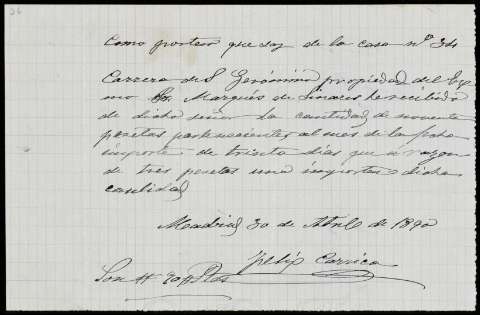 36
Como portero que soy de la casa nº 34
Carrera de S Gerónimo propiedad del Exce
mo Sr. Marqués de Linares he recibido
de dicho señor la cantidad de noventa
pesetas pertenecientes al mes de la fecha
importe de treinta dias que a razon
de tres pesetas una importan dicha
cantidad
Madrid 30 de Abril de 1890
Felix Carrica
Son # 90 Ptas